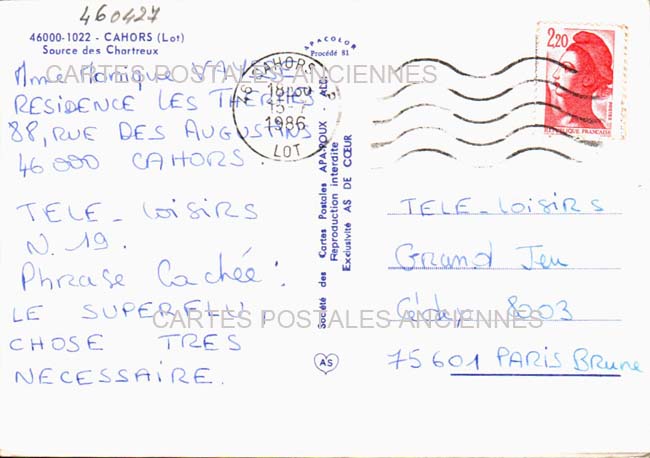 460427
46000-1022 - CAHORS (Lot)
Source des Chartreux
Mme Monique VAYSS
RESIDENCE LES THERMES
88, RUE DES AUGUSTINS
46000 CAHORS.
TELE-Loisirs
N. 19.
Phrase Cachée :
LE SUPERFLU
CHOSE TRES
NECESSAIRE.
APACOLOR
Procédé 81
Société des Cartes Postales APA-POUX - ALBI
Reproduction interdite
Exclusivité AS DE CŒUR
AS
46 CAHORS
18H30
15-7
1986
LOT
2,20
REPUBLIQUE FRANÇAISE
TELE-Loisirs
Grand Jeu
Cédex 8003
75601 PARIS Brune
CARTES POSTALES ANCIENNES
CARTES POSTALES ANCIENNES